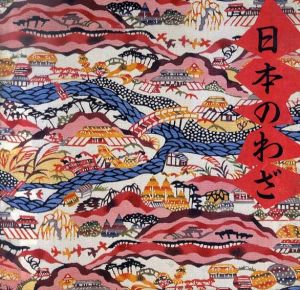 日本のわざ